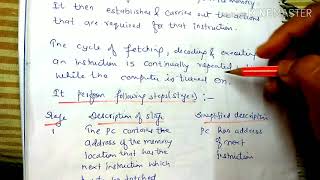 It then establishes & carries out the actions
that are required for that instruction.
The cycle of fetching, decoding & executing
an instruction is continually repeated
while the computer is turned on.
It perform following steps (stages) :-
Stage Description of stage Simplified description
1 The PC contains the PC has address
address of the memory of next
location that has the instruction
next instruction which